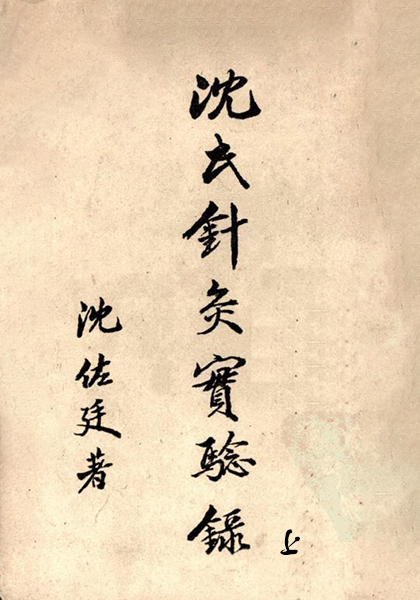 沈氏針灸實驗録
上
沈佐廷著